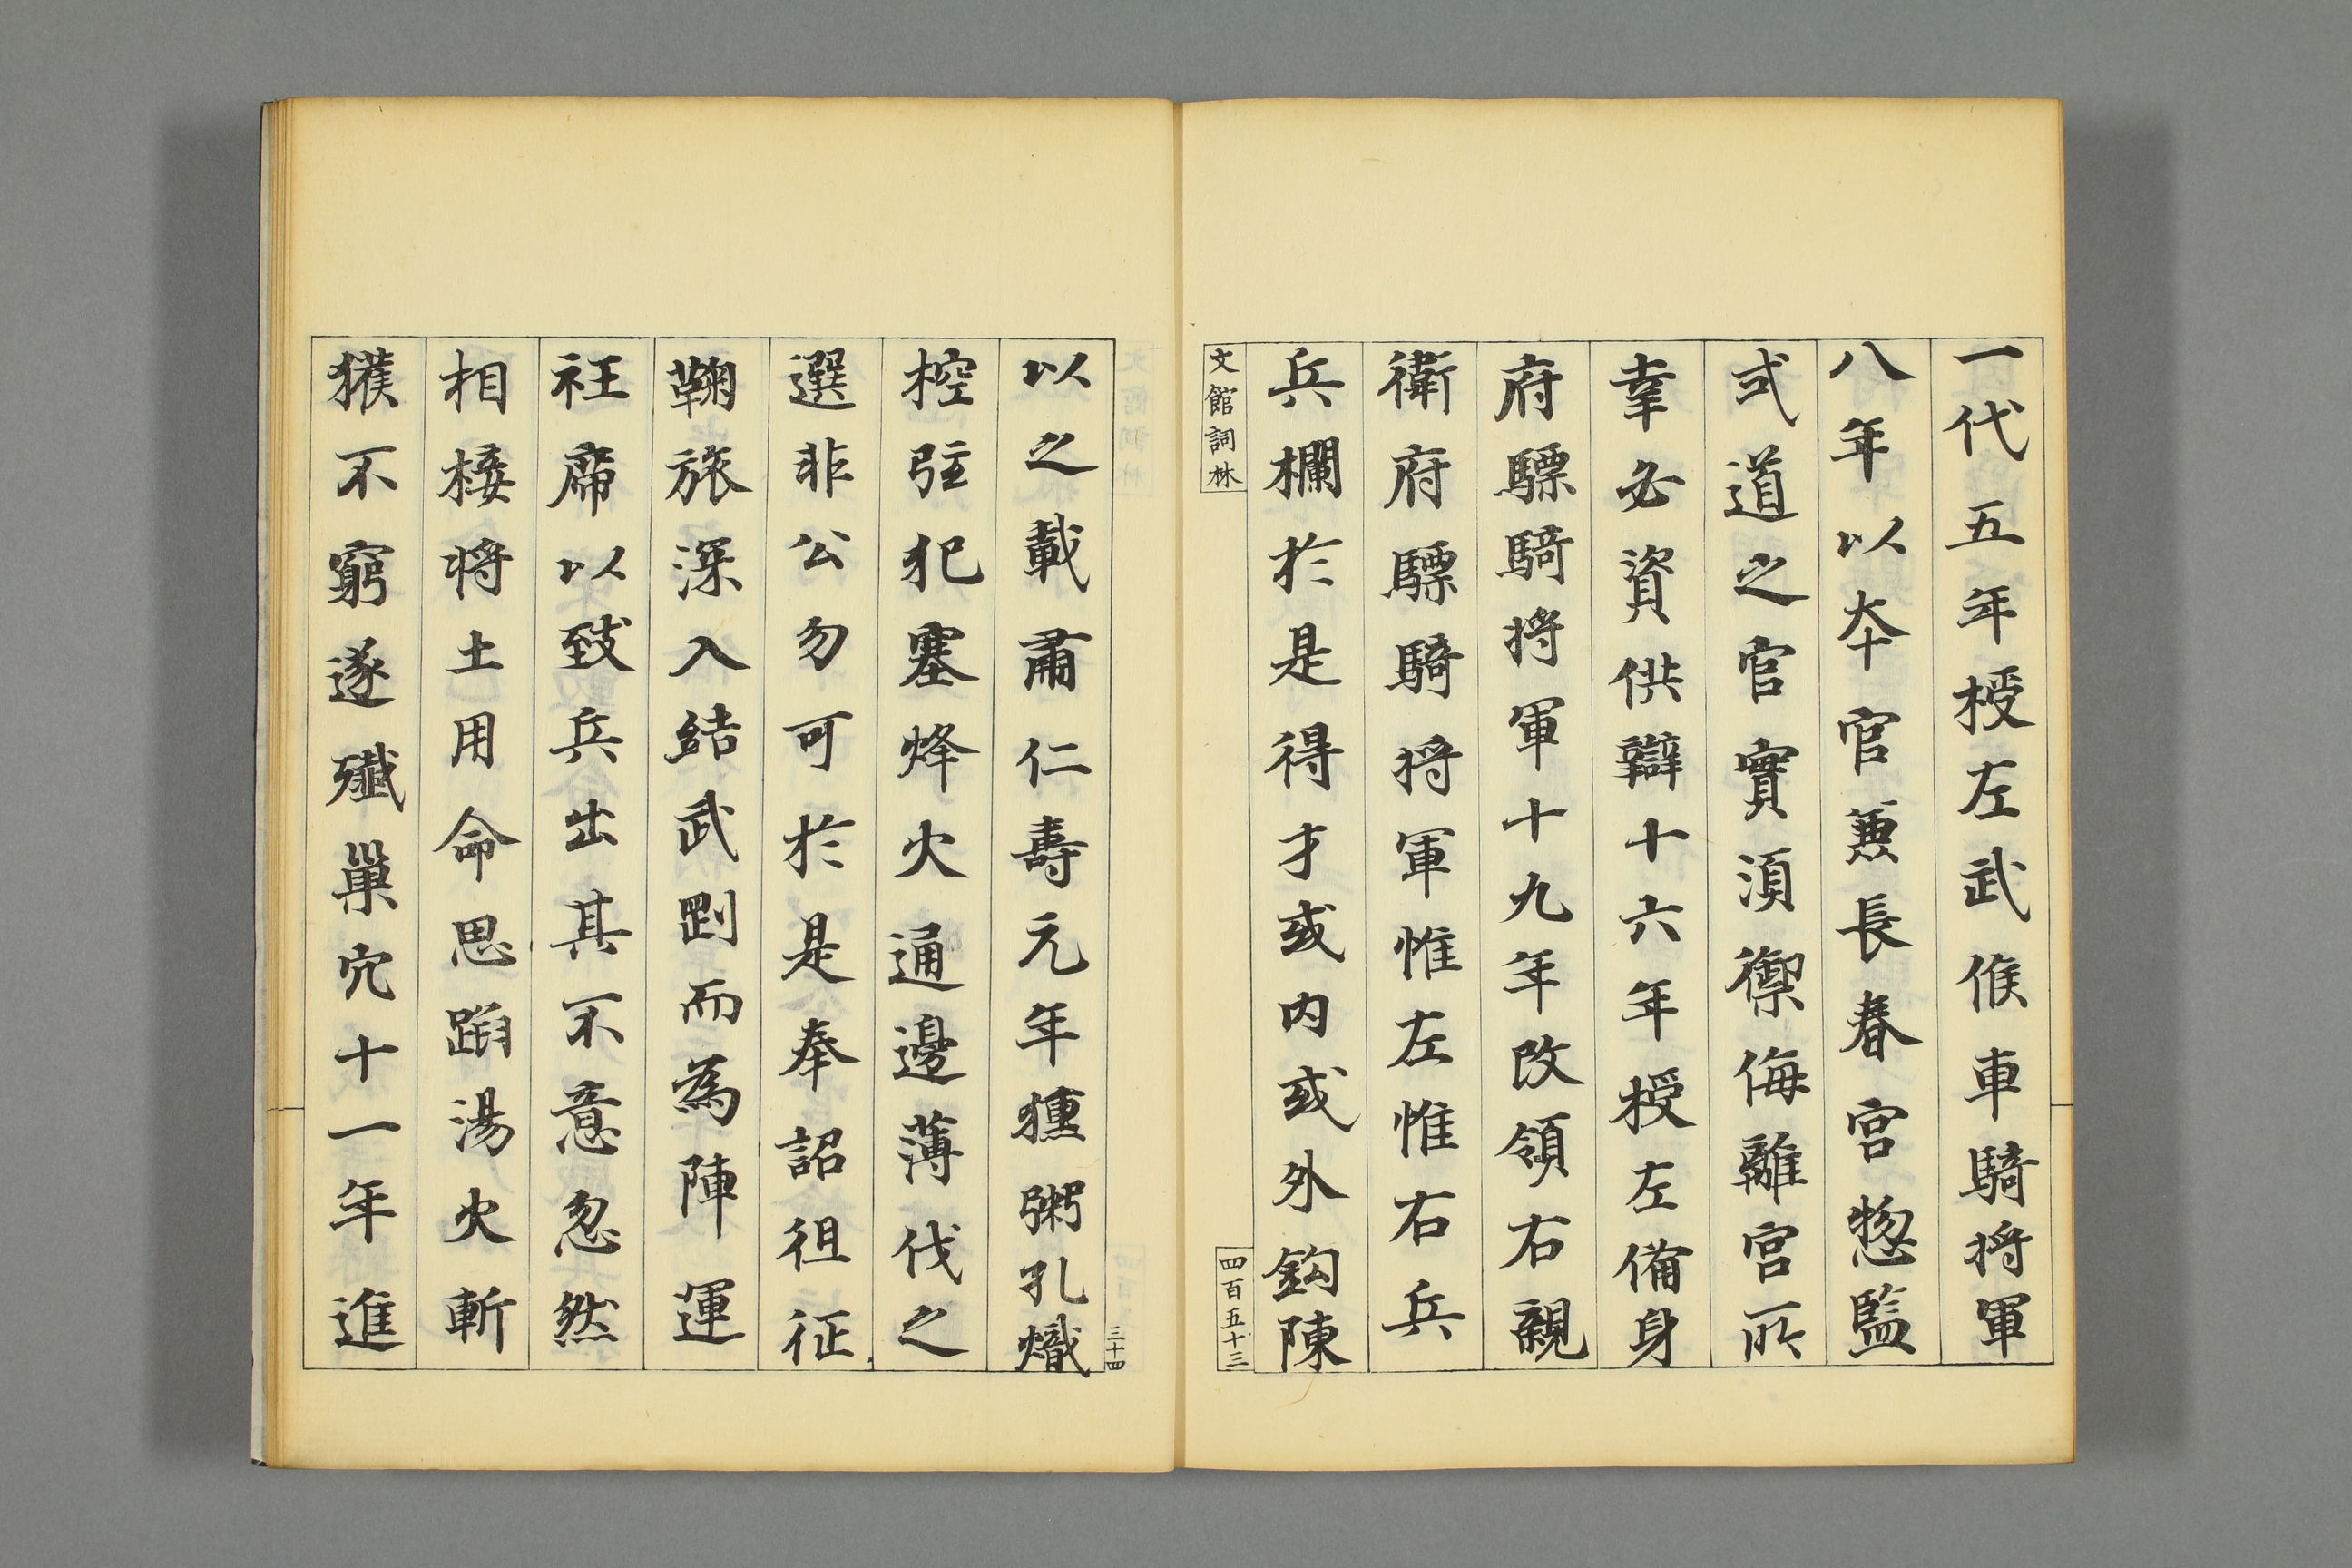 一代五年授左武候車騎将軍
八年以夲官兼長春宮惣監
式道之官實須禦侮離宮所
幸必資供辯十六年授左備身
府驃騎将軍十九年改領右親
衛府驃騎将軍惟左惟右兵
兵欄於是得才或内或外鈎陳
文館詞林
四百五十三
三十四
以之載肅仁壽元年獯粥孔熾
控弦犯塞烽火通邊薄伐之
選非公勿可於是奉詔徂征
鞠旅深入結武劉而為陣運
衽席以致兵出其不意忽然
相接将士用命思蹈湯火斬
獲不窮遂殲巢穴十一年進